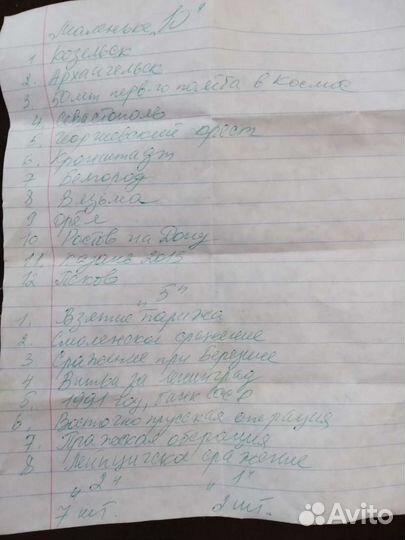 Маленькие "10"
1 Козельск
2. Архангельск
3. 50 лет перв-го полёта в космос
4 Севастополь
5 Георгиевский крест
6. Кронштадт
7 Белгород
8 Вязьма
9 Орёл
10 Ростов на Дону
11 Казань 2013
12 Псков
"5"
1. Взятие Парижа
2. Смоленское сражение
3 Сражение при Березине
4 Битва за Ленинград
5. 1991 год,
6. Восточнопрусская операция
7 Пражская операция
8 Лейпцигское сражение
"2" "1"
7 шт. 2 шт.
Avito